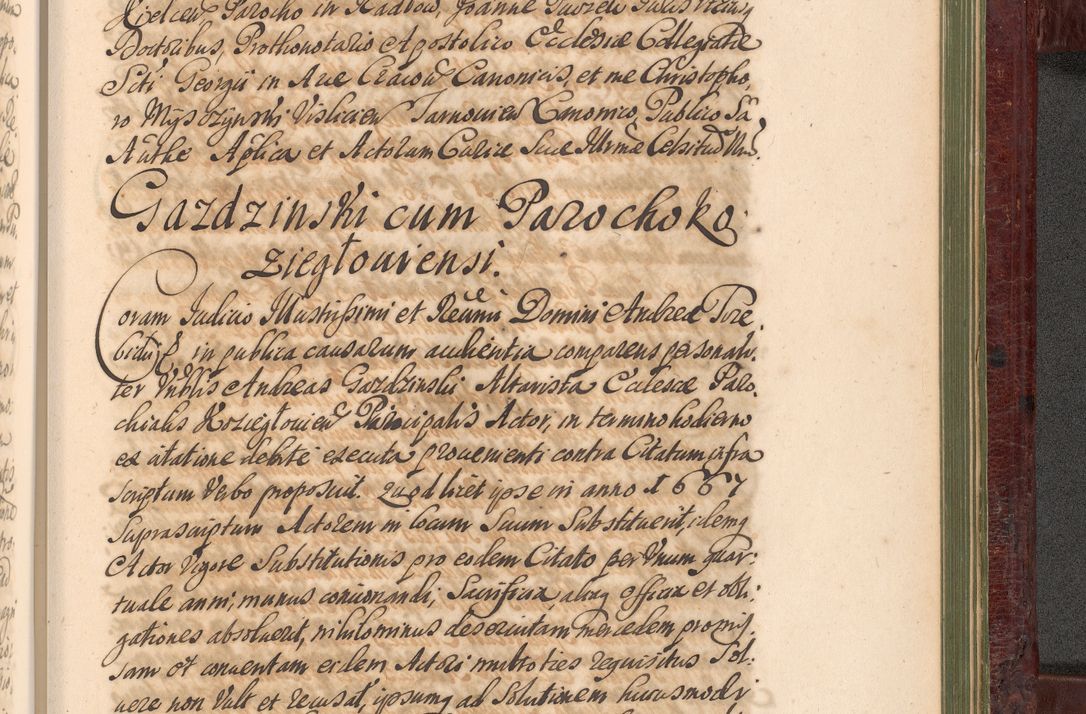 Kielcen Parocho in Radłow, Joanne
Doctoribus, Prothonotario Apostolico Ecclesiae Collegiatae
Scti Georgii in Arce Cracov Canonicis, et me Christopho,
ro Myszczynski Vislicien Tarnovien Canonico, Publico Sa
Authe Aplica et Actorum Curiae Suae Illrmae Celsitud
Gazdzinski cum Parocho Ko
ziegłoviensi.
Coram Iudicio Illustrissimi et Reverendissimi Domini Andreae Trze,
bicki in publica causarum audientia comparens personali,
ter Vnblis Andreas Gazdzinski Altarista Ecclesiae Paro
chialis Koziegłovien Principalis Actor, in termino hodierno
ex citatione debite executa provenienti contra Citatum infra
scriptum Verbo proposuit. Quod licet ipse in anno 1667
suprascriptum Actorem in locum Suum Substituerit, idemq
Actor Vigore Substitutionis pro eodem Citato per Vnum quar:
tuale anni, munus concionandi, Sacrificia, aliaq officia et obli
gationes absoluerit, nihilominus deservitam mercedem promis,
sam et conventam eidem Actori multoties requisitus Sol:
vere non Vult et recusat, ipsumq ad Solutionem huiusmodi